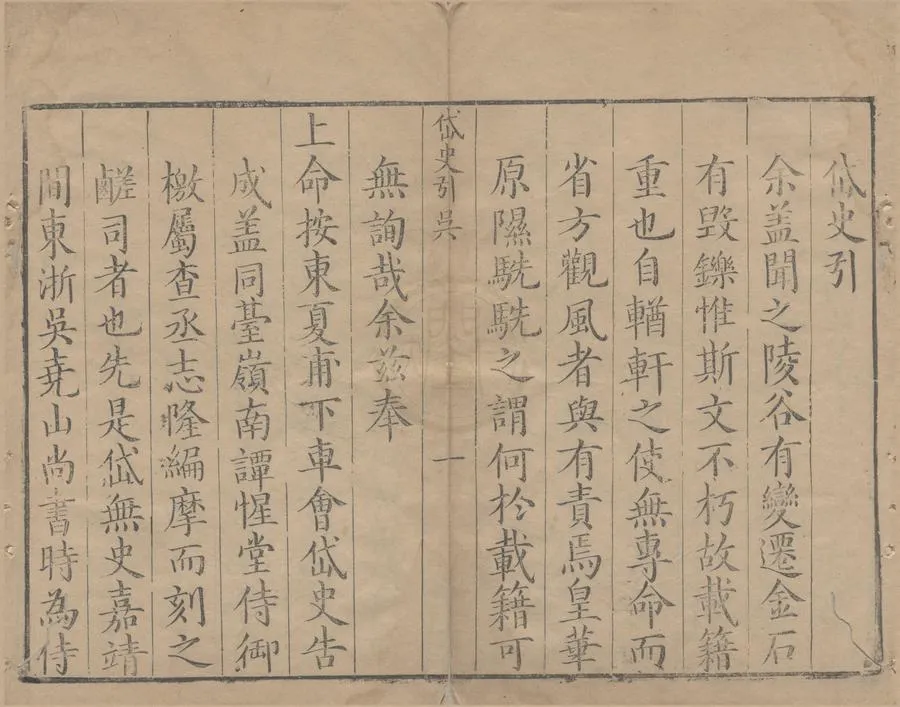 岱史引
余盖聞之陵谷有變遷金石
有毀鑠惟斯文不朽故載籍
重也自輶軒之使無專命而
省方觀風者與有責焉皇華
原隰駪駪之謂何於載籍可
岱史引吳 一
無詢哉余茲奉
上命按東夏甫下車會岱史告
成盖同臺嶺南譚惺堂侍御
檄屬查丞志隆編摩而刻之
鹺司者也先是岱無史嘉靖
間東浙吳堯山尚書時為侍